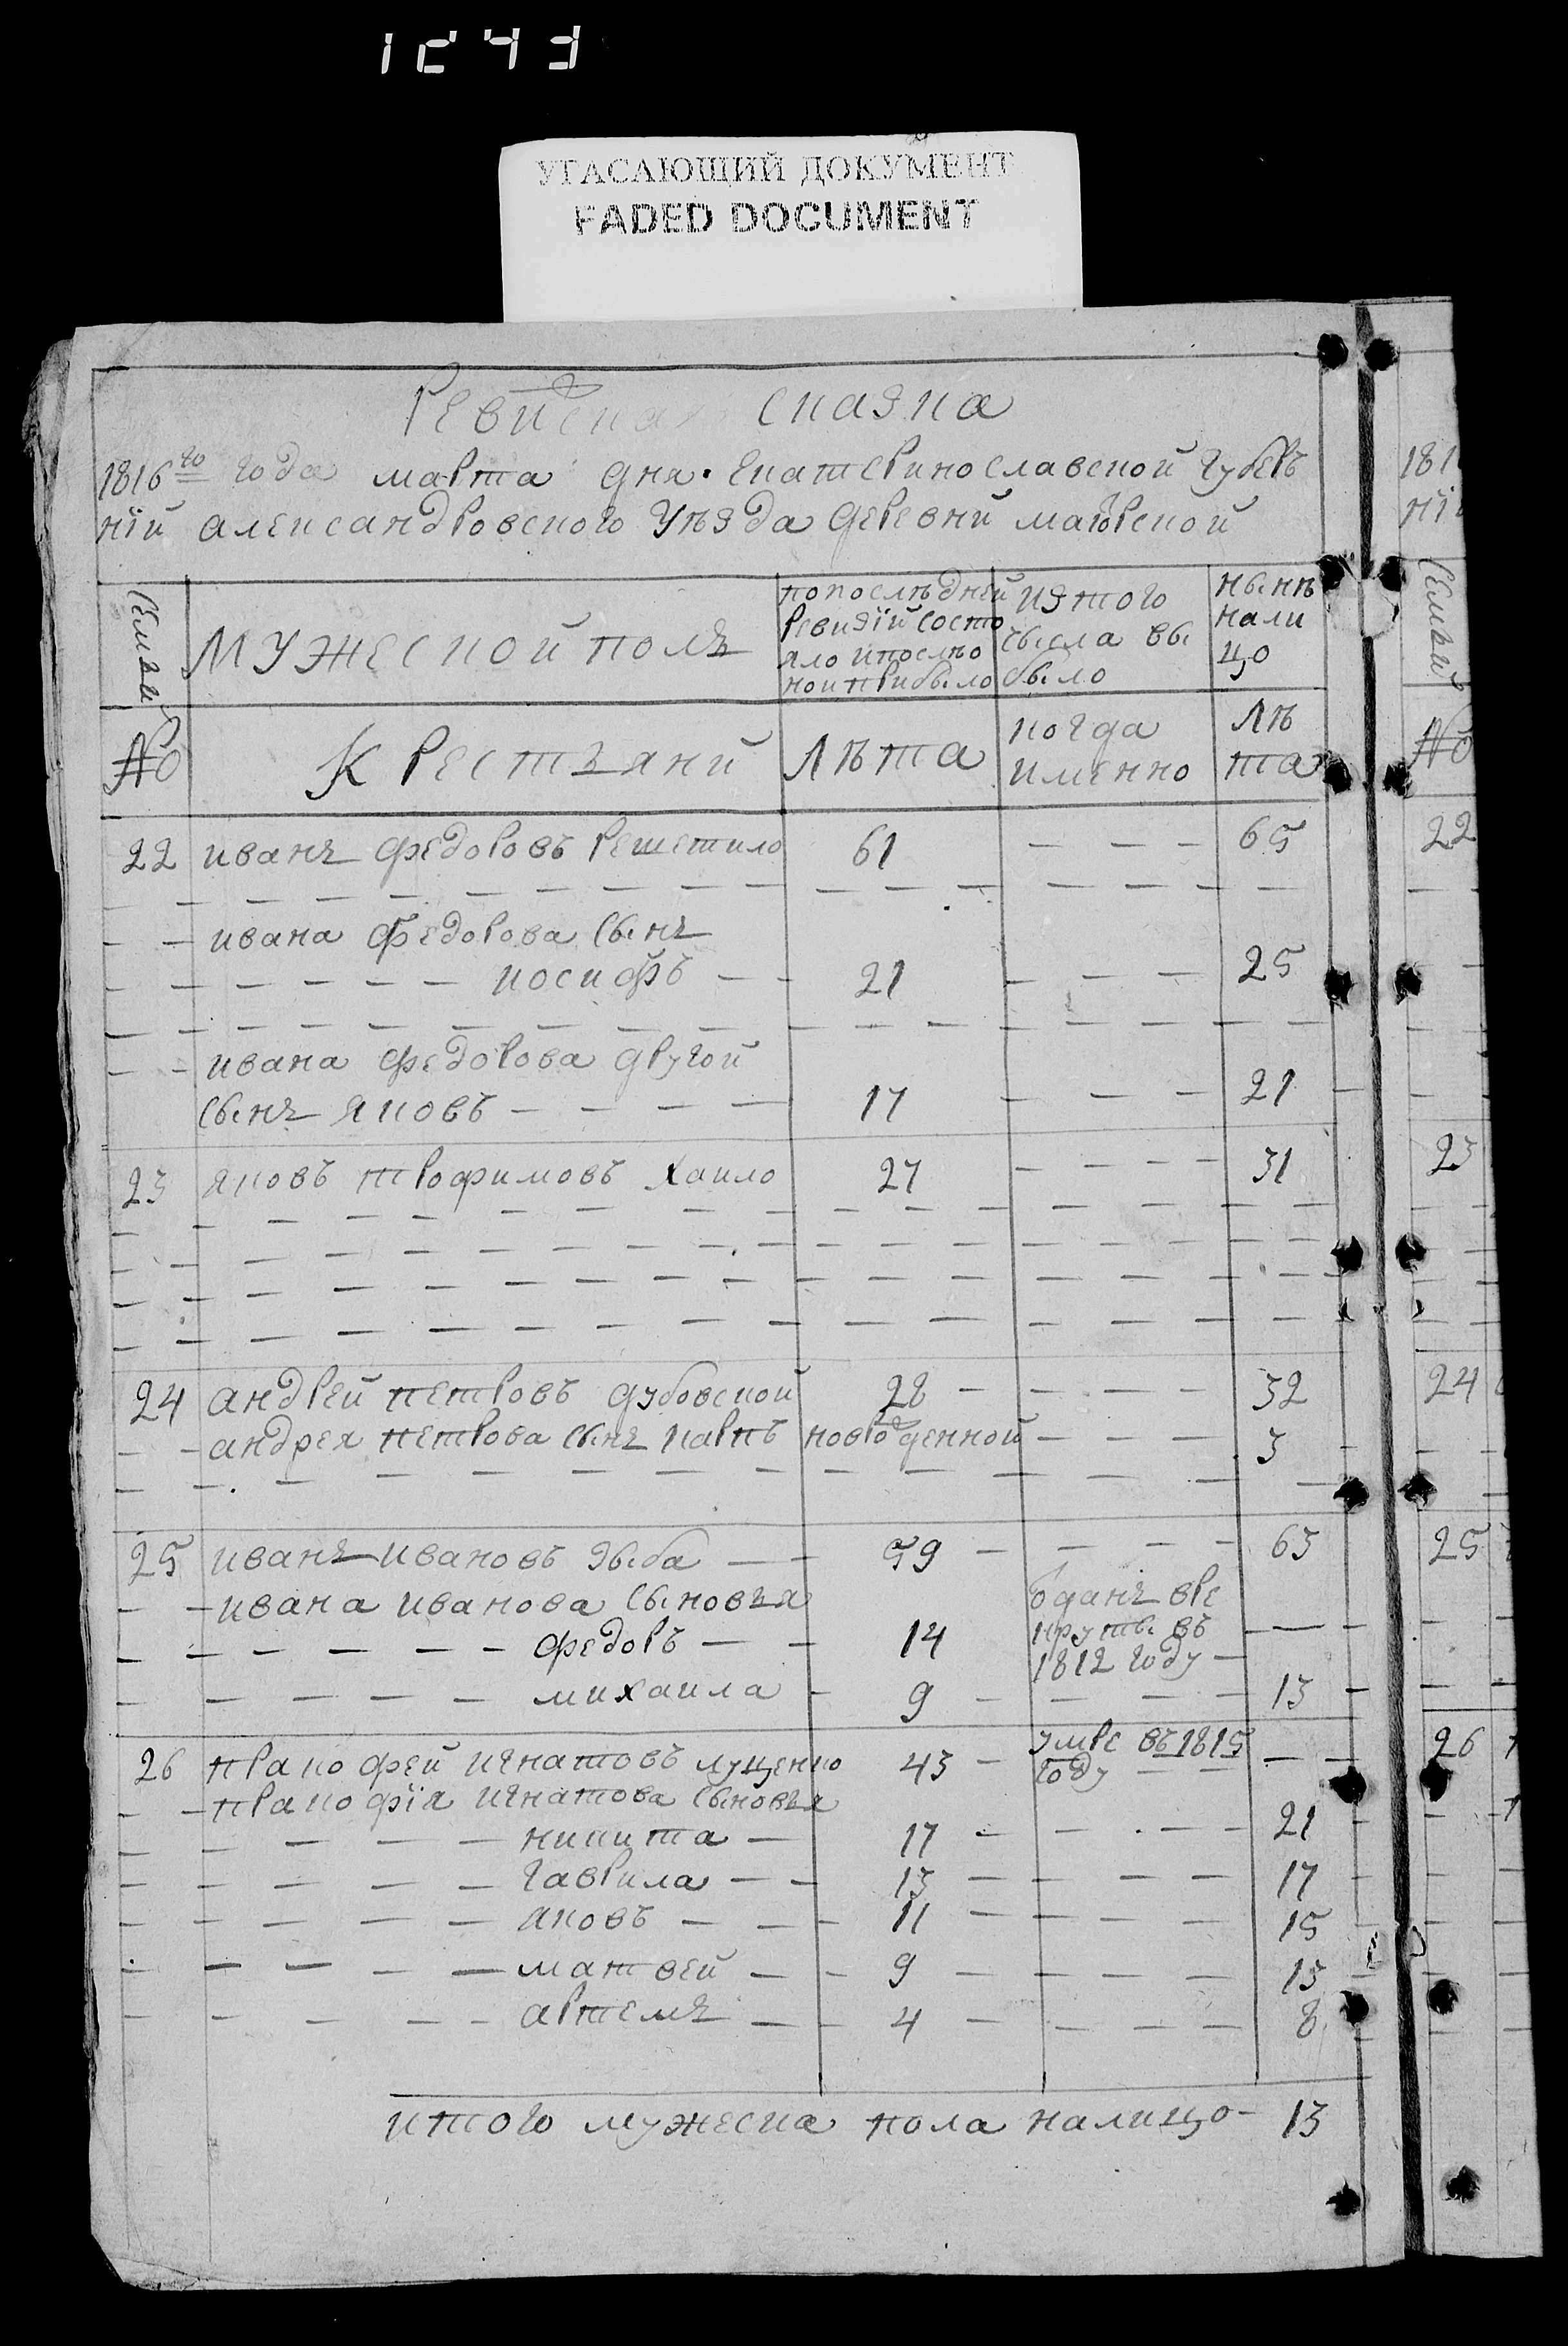 1243
УГАСАЮЩИЙ ДОКУМЕНТ
FADED DOCUMENT
Ревиская сказка
1816го года марта дня. Екатеринославской губер
нїй александровского Уѣзда деревни маѣорской
семьи мужеской полъ попослѣдней ревизїи состояло ипослѣ оной прибыло изтого числа выбыло нынѣ налицо
№ Крестъяни Лѣта когда именно Лѣта
22 иванъ федоровъ решетило 61 65
ивана федорова сынъ
иосифъ 21 25
ивана федорова другой
сынъ яковъ 17 21
23 яковъ трофимовъ хаило 27 31
24 андрей петровъ дубовской 28 32
андрея петрова сынъ карпъ новорожденной 3
25 иванъ ивановъ зыба 59 63
ивана иванова сыновъя
федоръ 14 ѿданъ вре круты въ 1812 году
михаила 9 13
26 пракофей игнатовъ луценко 43 умре въ 1815 году
пракофїя игнатова сыновъя
никита 17 21
гаврила 13 17
яковъ 11 15
матвей 9 13
артемъ 4 8
итого мужеска пола налицо 13
181
нїй
семьи
№
22
23
24
25
26